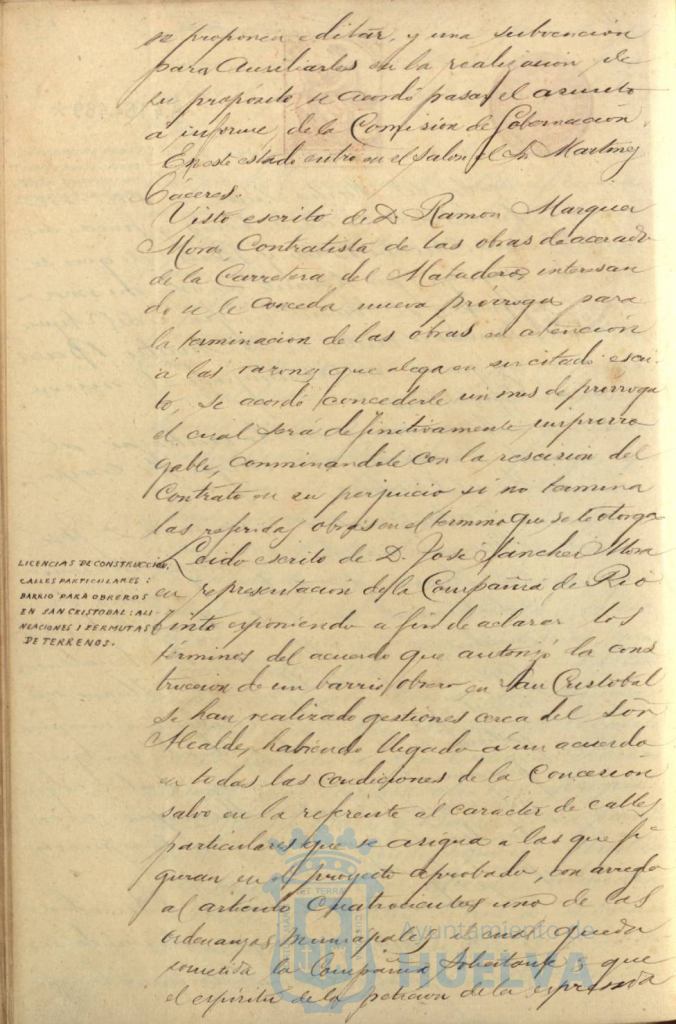 se proponen editar, y una subvención
para Auxiliarles en la realización de
su propósito, se acordó pasar el asunto
a informe de la Comisión de Gobernación.
En este estado entro en el salon el Sr Martinez
Cáceres.
Visto escrito de D. Ramon Marquez
Mora, Contratista de las obras de acerado
de la Carretera del Matadero, interesan
do se le conceda nueva prórroga para
la terminacion de las obras en atención
á las razones que alega en su citado escri-
to, se acordó concederle un mes de prorroga
el cual será definitivamente improrro
gable, conminandole con la rescision del
Contrato en su perjuicio si no termina
las referidas obras en el termino que se le otorga
LICENCIAS DE CONSTRUCCION,
CALLES PARTICULARES:
BARRIO PARA OBREROS
EN SAN CRISTOBAL: ALI-
NEACIONES I FERMUTAS
DE TERRENOS.
Leido escrito de D. José Sánchez Mora
en representación de la Compañia de Rio
Tinto exponiendo á fin de aclarar los
términos del acuerdo que autorizó la cons
truccion de un barrio obrero en San Cristobal
se han realizado gestiones cerca del Señor
Alcalde, habiendo llegado á un acuerdo
en todas las condiciones de la Concesión
salvo en la referente al caracter de calles
particulares que se asigna á las que fi-
guran en el proyecto aprobado, con arreglo
al artículo Cuatrocientos uno de las
Ordenanzas Municipales á cual queda
sometida la Compañia solicitante y que
el espiritu de la peticion de la expresada
Ayuntamiento de
HUELVA